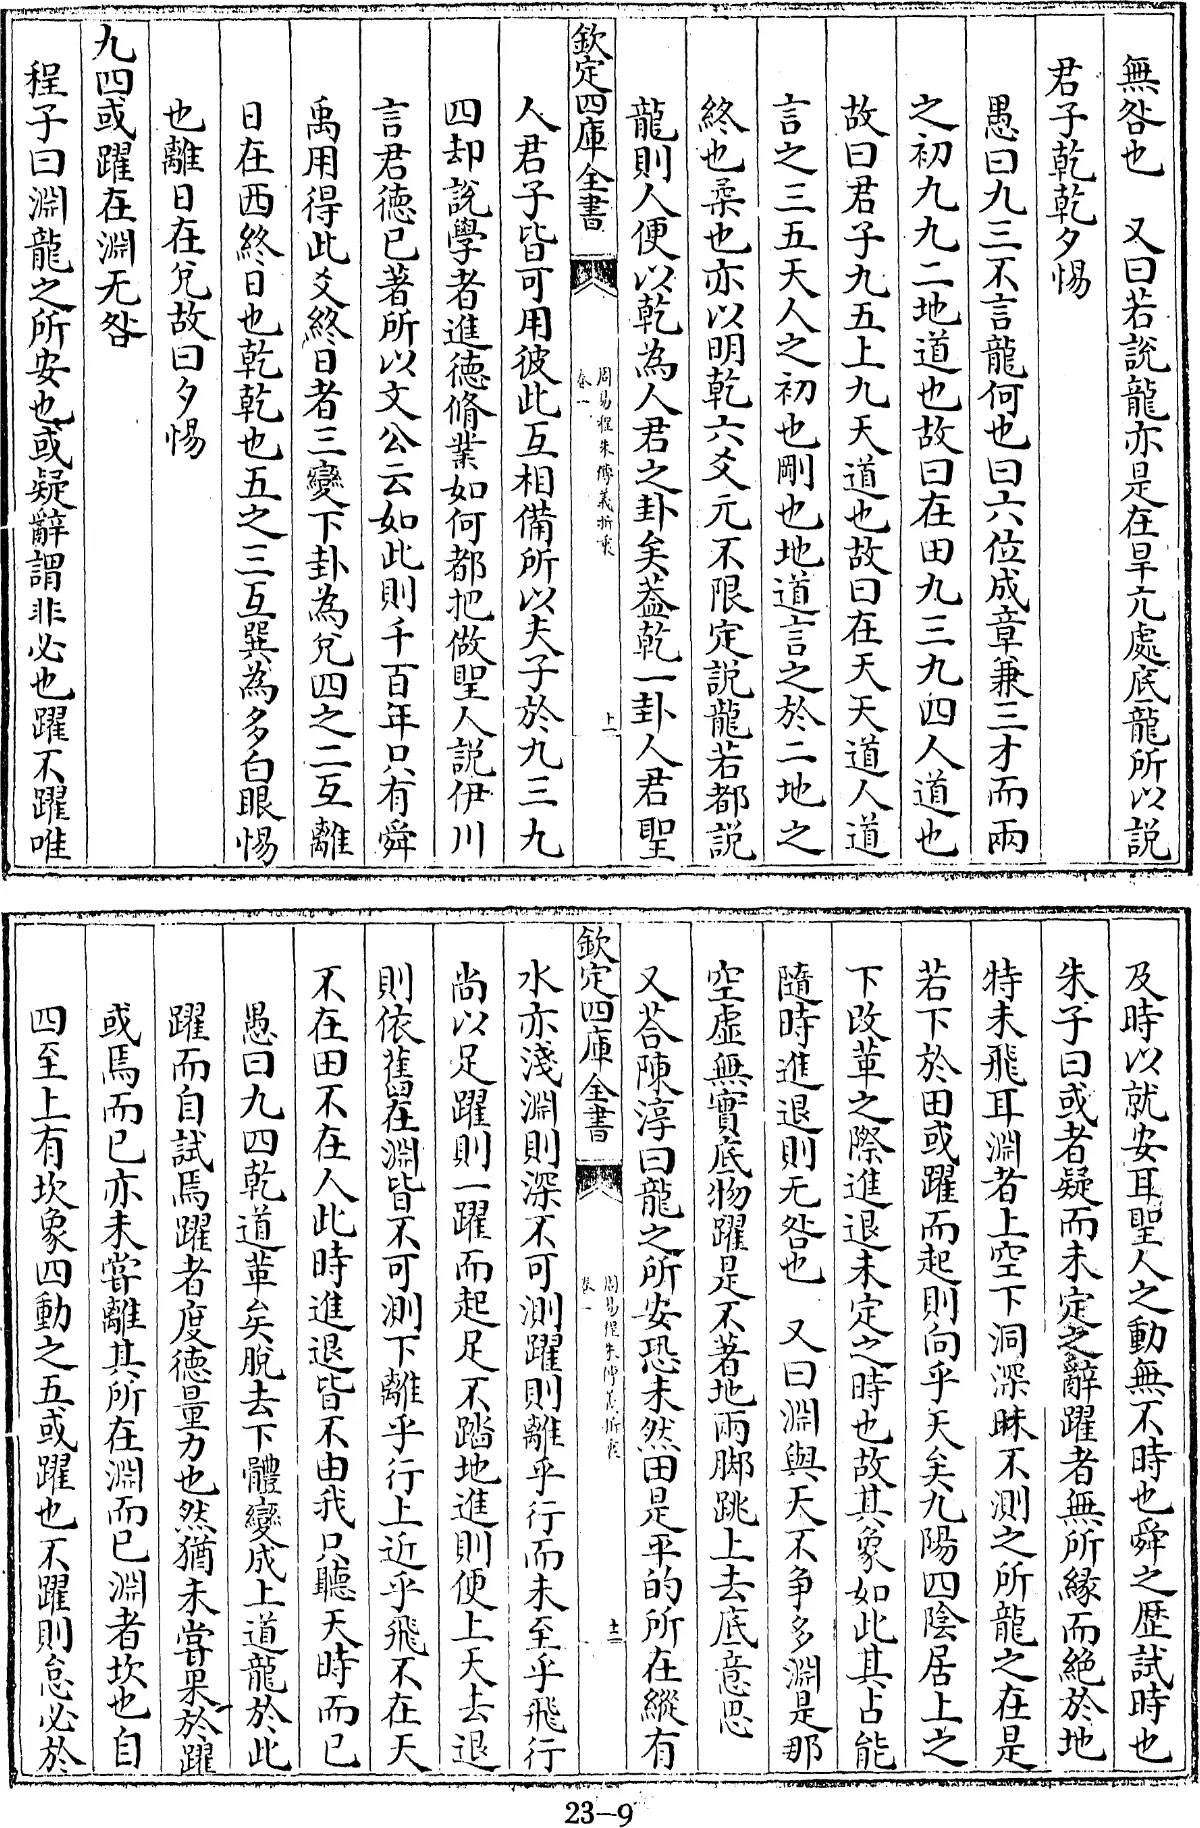 無咎也　又曰若説龍亦是在旱亢處底龍所以説
君子乾乾夕惕
愚曰九三不言龍何也曰六位成章兼三才而兩
之初九九二地道也故曰在田九三九四人道也
故曰君子九五上九天道也故曰在天天道人道
言之三五天人之初也剛也地道言之於二地之
終也柔也亦以明乾六爻元不限定説龍若都説
龍則人便以乾為人君之卦矣葢乾一卦人君聖
欽定四庫全書
周易程朱傳義折衷
卷一
上
人君子皆可用彼此互相備所以夫子於九三九
四却説學者進徳脩業如何都把做聖人説伊川
言君徳已著所以文公云如此則千百年只有舜
禹用得此爻終日者三變下卦為兌四之二互離
日在西終日也乾乾也五之三互巽為多白眼惕
也離日在兌故曰夕惕
九四或躍在淵无咎
程子曰淵龍之所安也或疑辭謂非必也躍不躍唯
及時以就安耳聖人之動無不時也舜之歴試時也
朱子曰或者疑而未定之辭躍者無所緣而絶於地
特未飛耳淵者上空下洞深昧不測之所龍之在是
若下於田或躍而起則向乎天矣九陽四陰居上之
下改革之際進退未定之時也故其象如此其占能
隨時進退則无咎也　又曰淵與天不争多淵是那
空虛無實底物躍是不著地兩脚跳上去底意思
又荅陳淳曰龍之所安恐未然田是平的所在縱有
欽定四庫全書
周易程朱傳義折衷
卷一
十二
水亦淺淵則深不可測躍則離乎行而未至乎飛行
尚以足躍則一躍而起足不踏地進則便上天去退
則依舊在淵皆不可測下離乎行上近乎飛不在天
不在田不在人此時進退皆不由我只聽天時而已
愚曰九四乾道革矣脫去下體變成上道龍於此
躍而自試焉躍者度徳量力也然猶未嘗果於躍
或焉而已亦未嘗離其所在淵而已淵者坎也自
四至上有坎象四動之五或躍也不躍則怠必於
23-9